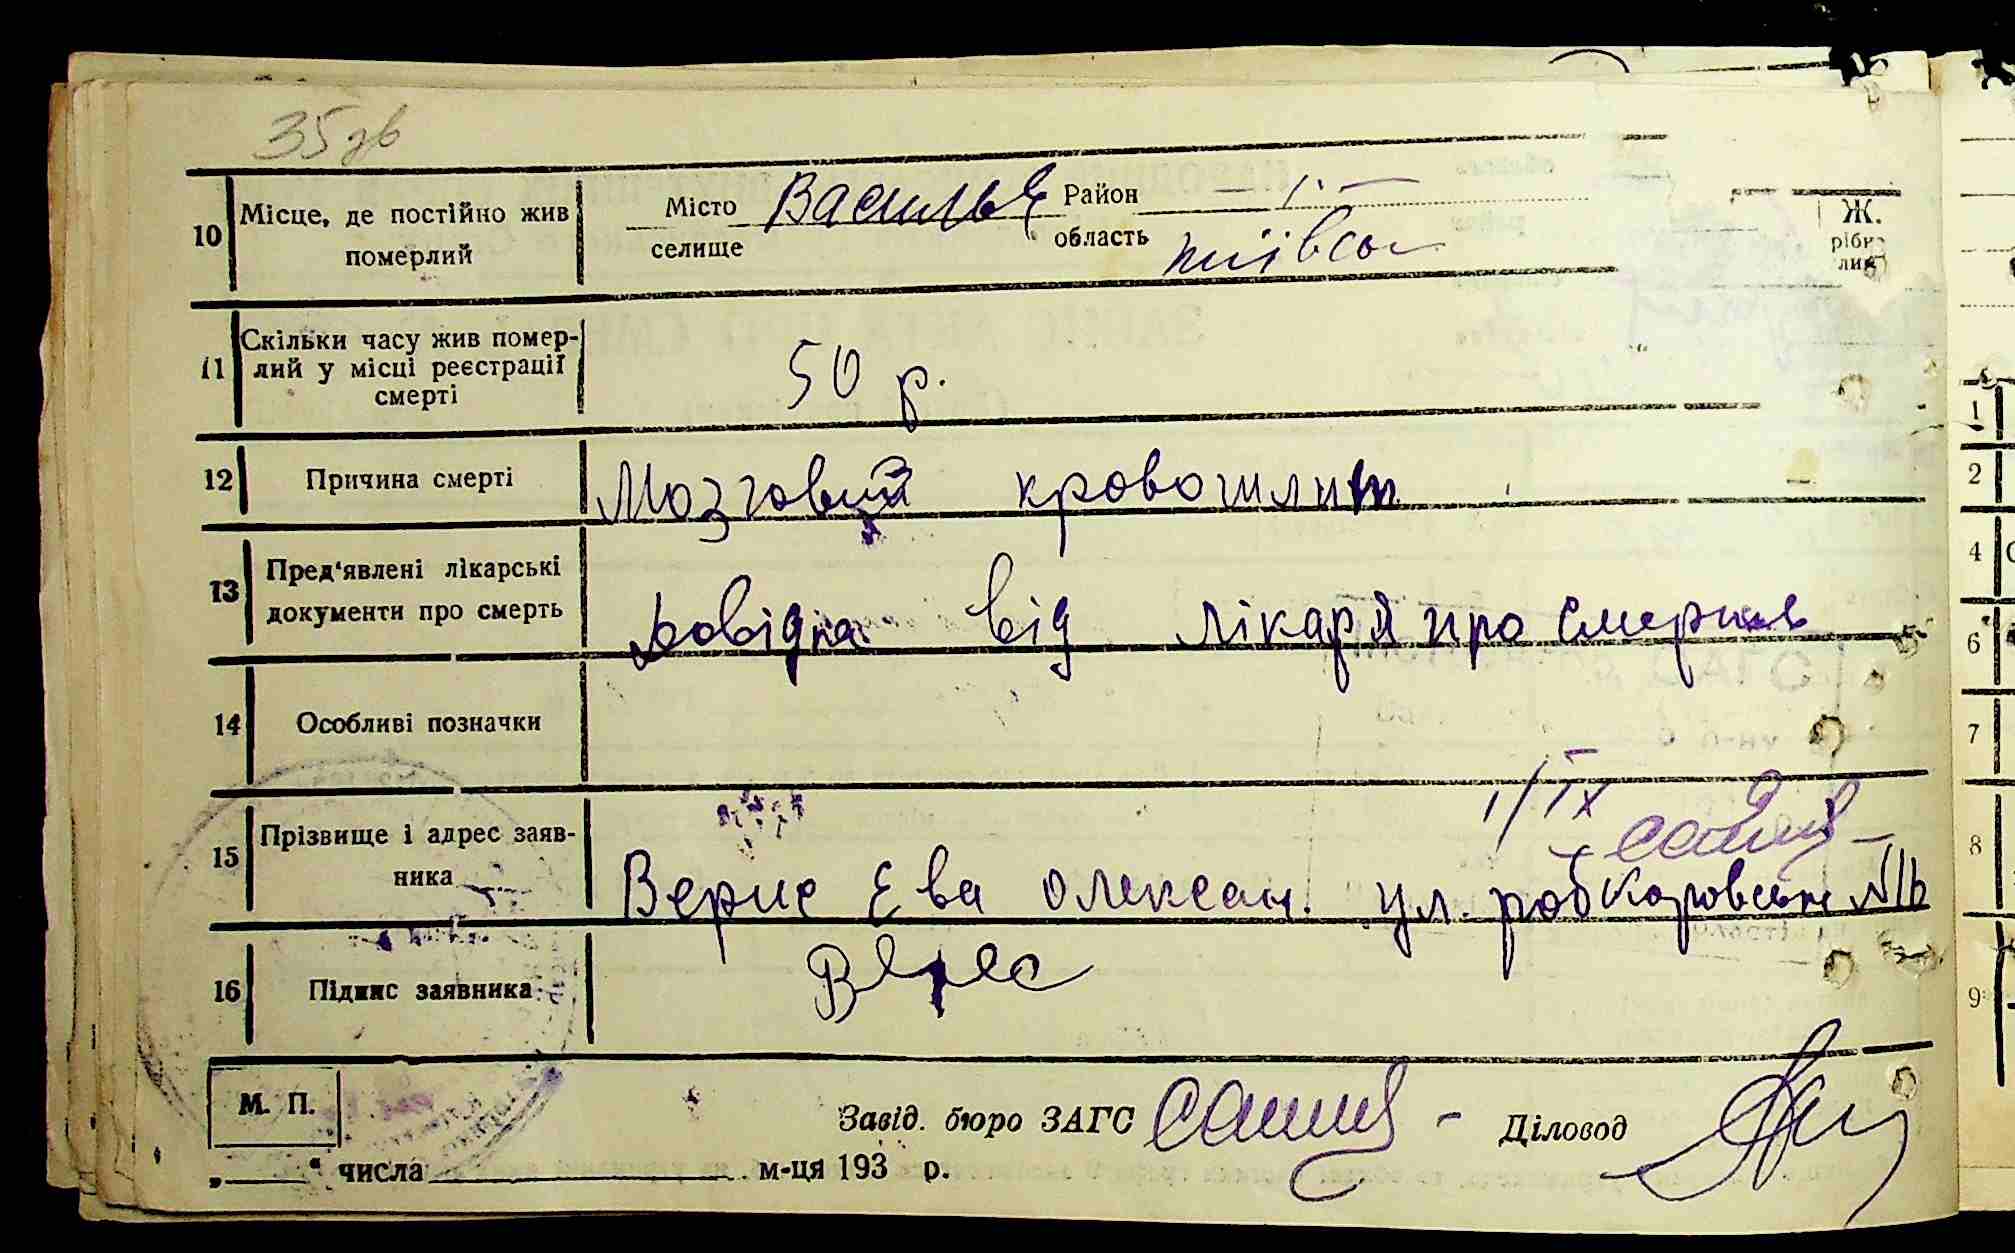 35 зв
10 Місце, де постійно жив померлий Місто селище Васильк Район область Київськ
Ж.
11 Скільки часу жив померлий у місці реєстрації смерті 50 р.
12 Причина смерті Мозговий кровошлит
13 Пред'явлені лікарські документи про смерть Довідка від лікаря про смерть
14 Особливі позначки
1/IX
15 Прізвище і адрес заявника Верис Ева Олексан. ул. робкоровськ №16
16 Підпис заявника Верес
М. П. Завід. бюро ЗАГС Діловод
„ “ числа м-ця 193 р.
1
2
4
6
7
8
9